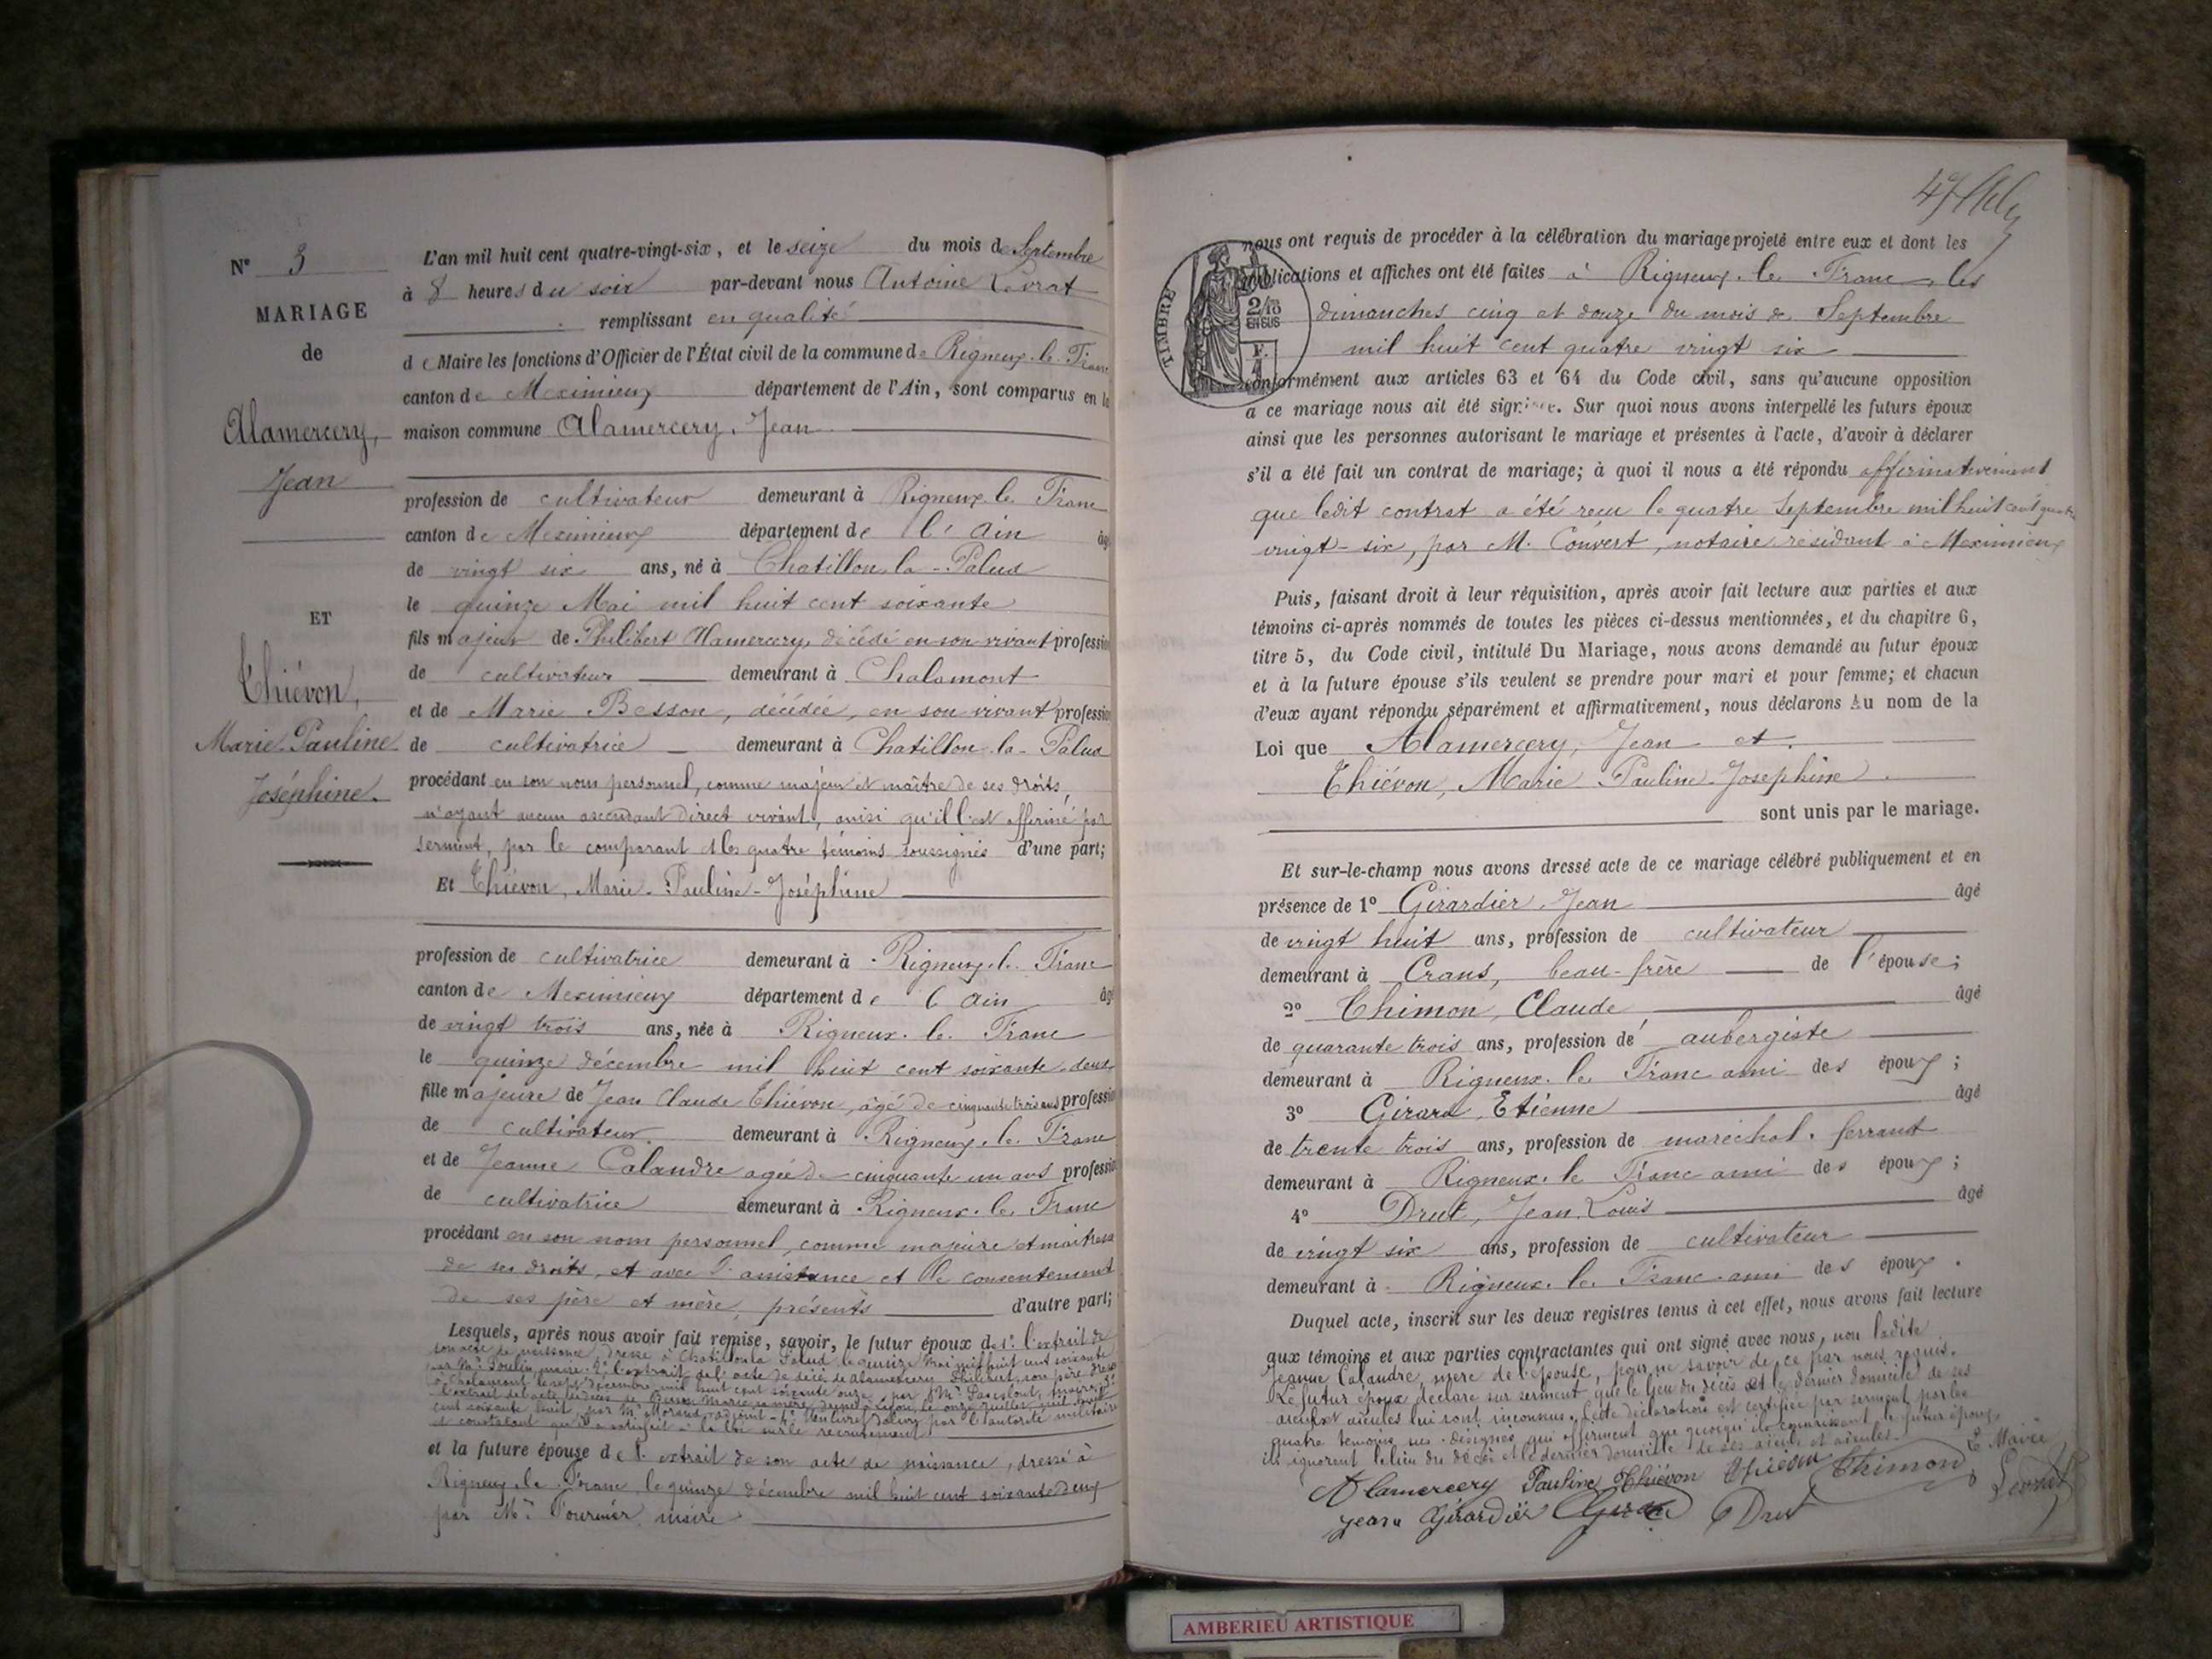 N° 3
MARIAGE
de
Alamercery,
Jean
ET
Thiévon,
Marie-Pauline
Joséphine.
L'an mil huit cent quatre-vingt-six, et le seize du mois de Septembre
à 8 heures du soir par-devant nous Antoine Levrat
remplissant en qualité
de Maire les fonctions d'Officier de l'État civil de la commune de Rigneux-le-Franc
canton de Meximieux département de l'Ain, sont comparus en la
maison commune Alamercery, Jean
profession de cultivateur demeurant à Rigneux-le-Franc
canton de Meximieux département de l'Ain âgé
de vingt six ans, né à Chatillon-la-Palud
le quinze Mai mil huit cent soixante
fils majeur de Philibert Alamercery, décédé en son vivant profession
de cultivateur demeurant à Chalamont
et de Marie Besson, décédée, en son vivant profession
de cultivatrice demeurant à Chatillon-la-Palud
procédant en son nom personnel, comme majeur et maître de ses droits,
n'ayant aucun ascendant direct vivant, ainsi qu'il l'est affirmé par
serment, par le comparant et les quatre témoins soussignés d'une part;
Et Thiévon, Marie-Pauline-Joséphine
profession de cultivatrice demeurant à Rigneux-le-Franc
canton de Meximieux département de l'Ain âgé
de vingt trois ans, née à Rigneux-le-Franc
le quinze décembre mil huit cent soixante-deux
fille majeure de Jean Claude Thiévon, âgé de cinquante trois ans profession
de cultivateur demeurant à Rigneux-le-Franc
et de Jeanne Calandre agée de cinquante un ans profession
de cultivatrice demeurant à Rigneux-le-Franc
procédant en son nom personnel, comme majeure et maitresse
de ses droits, et avec l'assistance et le consentement
de ses père et mère, présents d'autre part;
Lesquels, après nous avoir fait remise, savoir, le futur époux de 1° l'extrait de
son acte de naissance, dressé à Chatillon la Palud le quinze Mai mil huit cent soixante
par Mr Poulin, maire. 2° l'extrait de l'acte de décès de Alamercery Philibert, son père dressé
à Chalamont le sept décembre mil huit cent soixante onze, par Mr maire, 3°
l'extrait de l'acte de décès de Besson Marie sa mère, dressé à Lyon, le onze juillet mil huit
cent soixante huit, par Mr Morand, adjoint - 4° Un livret délivré par l'autorité militaire
et constatant qu'il a satisfait à la loi sur le recrutement
et la future épouse de l'extrait de son acte de naissance, dressé à
Rigneux-le-Franc, le quinze décembre mil huit cent soixante deux
par Mr Fournier maire
47
TIMBRE
2/10
EN SUS
nous ont requis de procéder à la célébration du mariage projeté entre eux et dont les
publications et affiches ont été faites à Rigneux-le-Franc, les
dimanches cinq et douze du mois de Septembre
mil huit cent quatre vingt six
conformément aux articles 63 et 64 du Code civil, sans qu'aucune opposition
à ce mariage nous ait été signifiée. Sur quoi nous avons interpellé les futurs époux
ainsi que les personnes autorisant le mariage et présentes à l'acte, d'avoir à déclarer
s'il a été fait un contrat de mariage; à quoi il nous a été répondu affirmativement
que ledit contrat a été reçu le quatre Septembre mil huit cent quatre
vingt-six, par M. Convert, notaire résidant à Meximieux
Puis, faisant droit à leur réquisition, après avoir fait lecture aux parties et aux
témoins ci-après nommés de toutes les pièces ci-dessus mentionnées, et du chapitre 6,
titre 5, du Code civil, intitulé Du Mariage, nous avons demandé au futur époux
et à la future épouse s'ils veulent se prendre pour mari et pour femme; et chacun
d'eux ayant répondu séparément et affirmativement, nous déclarons Au nom de la
Loi que Alamercery, Jean et
Thiévon, Marie Pauline Josephine
sont unis par le mariage.
Et sur-le-champ nous avons dressé acte de ce mariage célébré publiquement et en
présence de 1° Girardier Jean âgé
de vingt huit ans, profession de cultivateur
demeurant à Crans, beau-frère de l'épouse;
2° Thimon, Claude âgé
de quarante trois ans, profession de aubergiste
demeurant à Rigneux-le-Franc ami des époux;
3° Girard, Etienne âgé
de trente trois ans, profession de maréchal-ferrant
demeurant à Rigneux-le-Franc ami des époux;
4° Drut, Jean Louis âgé
de vingt six ans, profession de cultivateur
demeurant à Rigneux-le-Franc ami des époux.
Duquel acte, inscrit sur les deux registres tenus à cet effet, nous avons fait lecture
aux témoins et aux parties contractantes qui ont signé avec nous, non ladite
Jeanne Calandre, mère de l'épouse, pour ne savoir de ce par nous requis.
Le futur époux déclare sur serment que le lieu du décès et le dernier domicile de ses
aïeuls et aïeules lui sont inconnus. Cette déclaration est certifiée par serment par les
quatre témoins sus-désignés qui affirment que quoiqu'ils connaissent le futur époux,
ils ignorent le lieu du décès et le dernier domicile de ses aïeuls et aïeules.
Alamercery Pauline Thiévon Thiévon Thimon Le Maire
Jean Girardier Girard Drut Levrat
AMBERIEU ARTISTIQUE